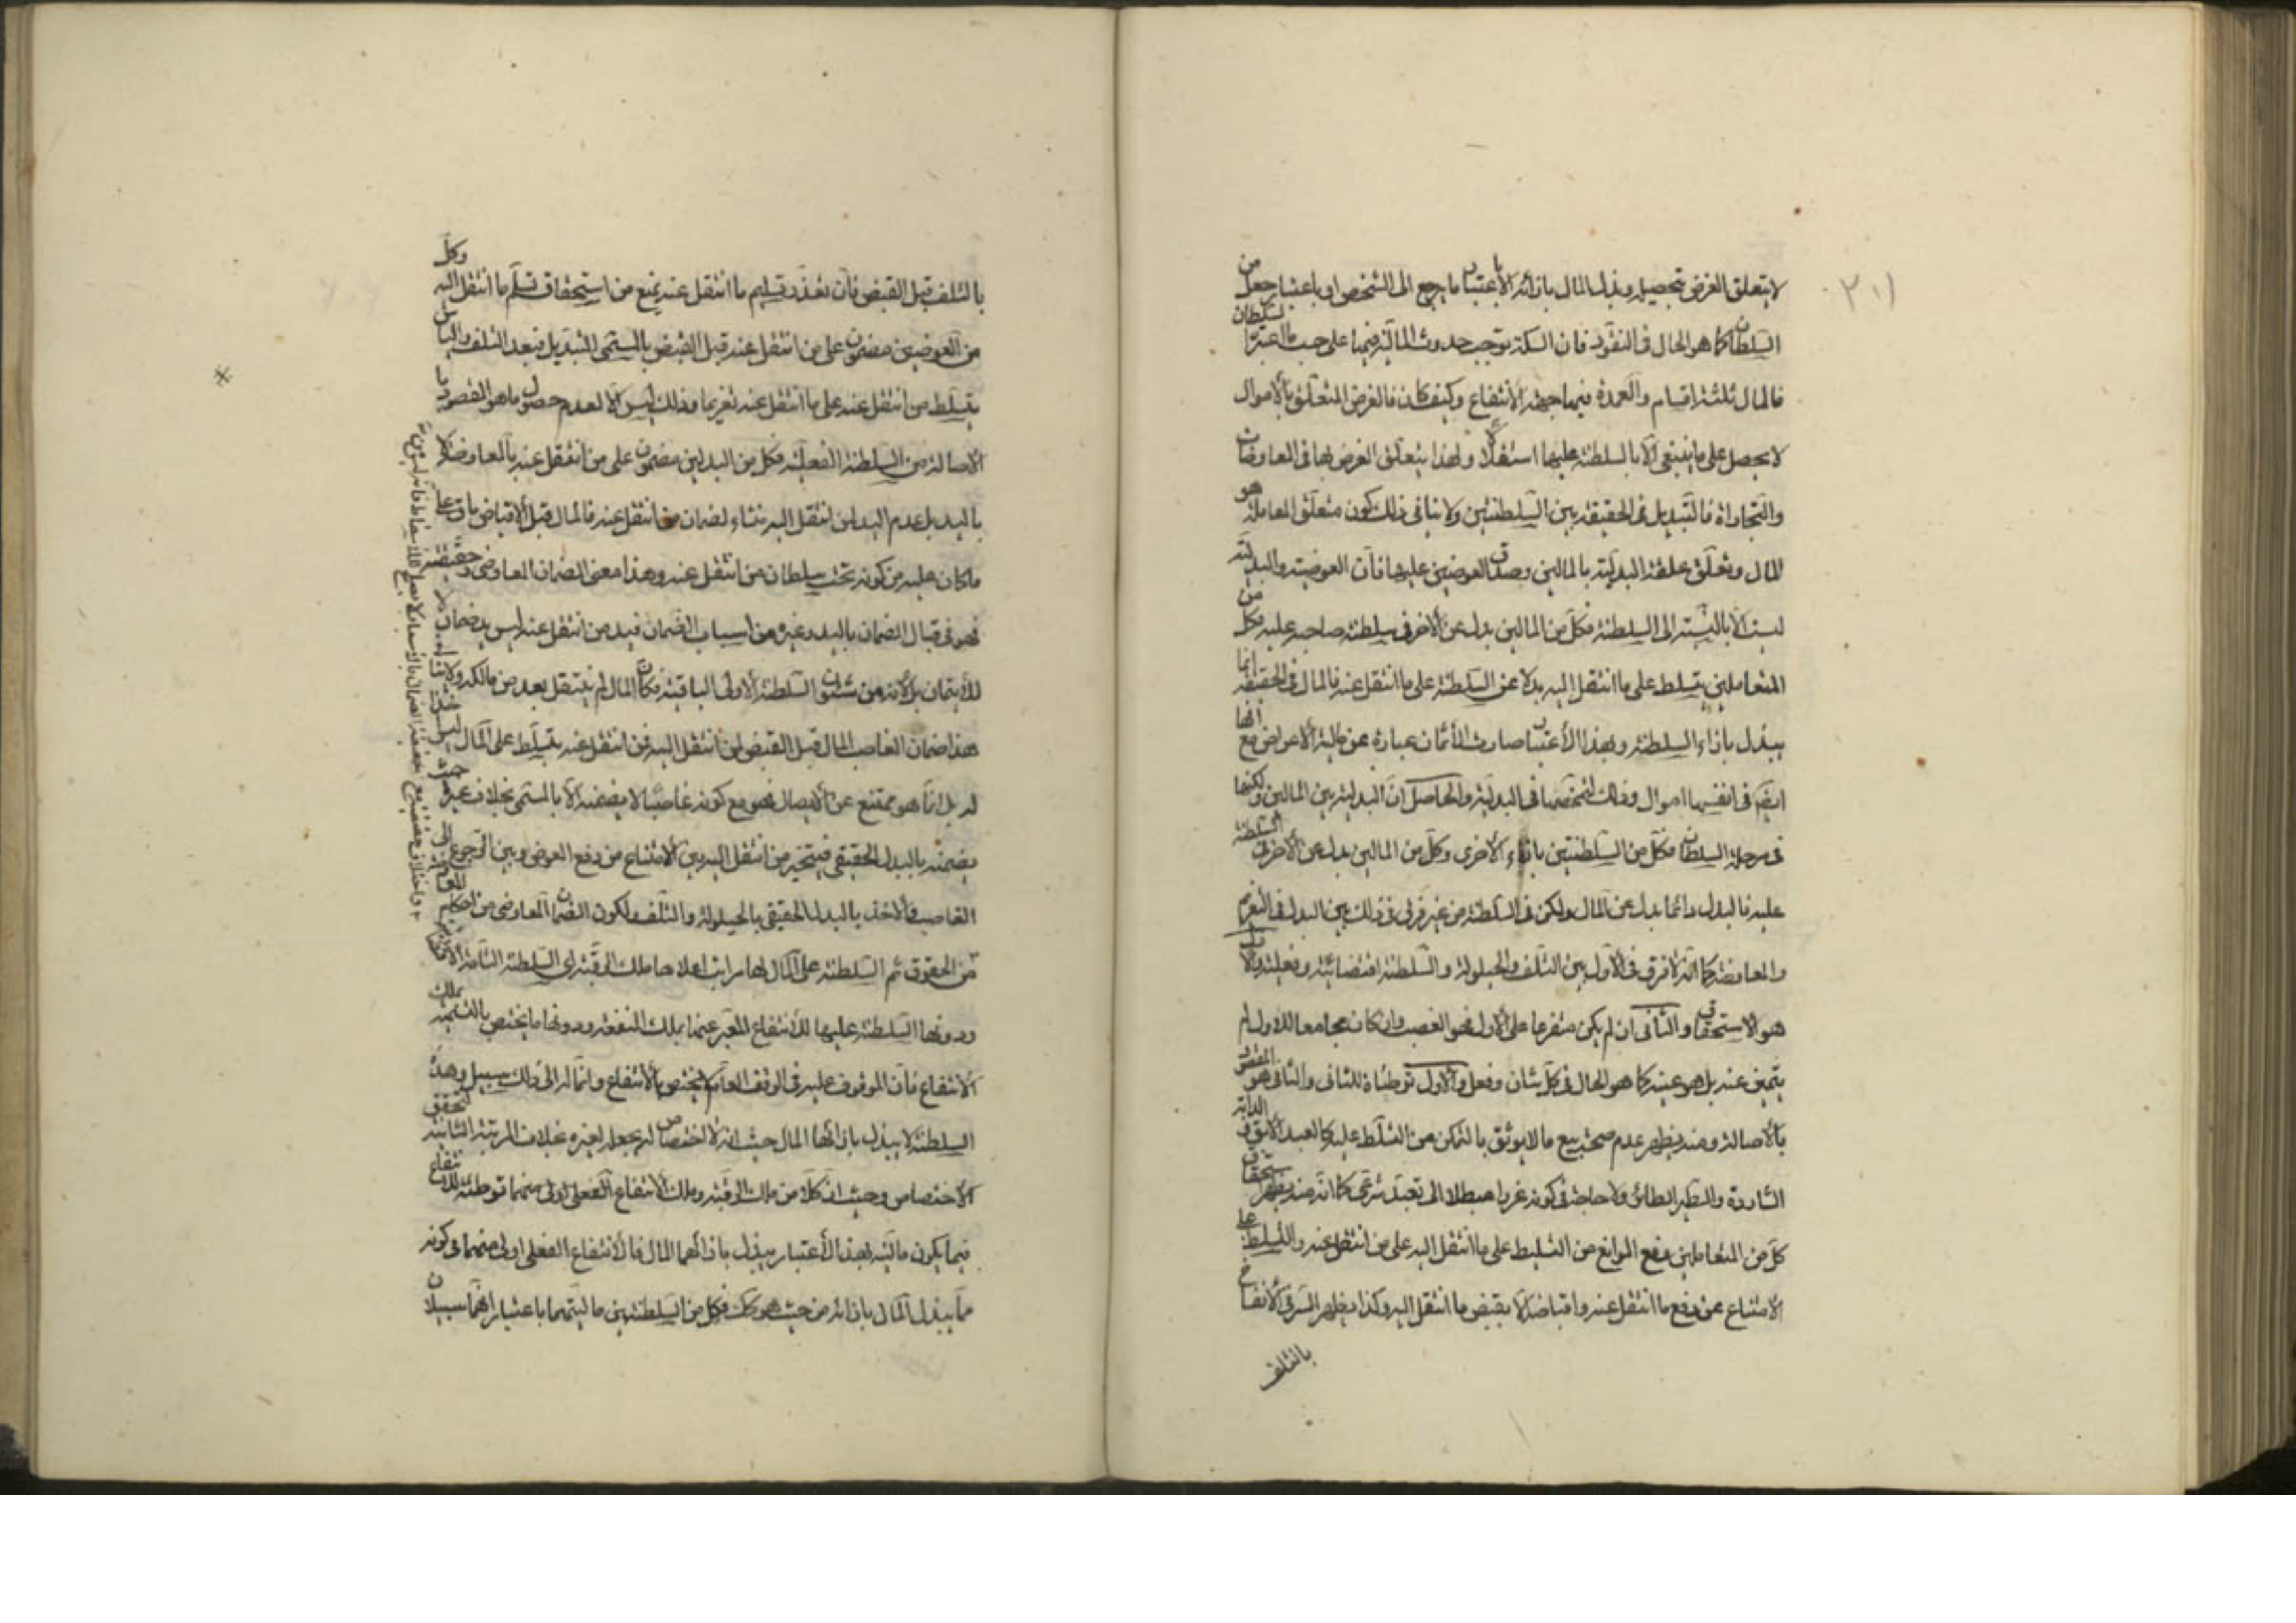 لا يتعلق الغرض بتحصيله وبذل المال بازائه الا باعتبار ما يرجع الى الشخص او باعتبار جعل من
السلطان كما هو الحال في النقود فان السكة توجب حدوث المالية فيها على حسب ما اعتبره السلطان
فالمال ثلثة اقسام والعمدة فيما جهة الانتفاع وكيف كان فالغرض المتعلق بالاموال
لا يحصل على ما ينبغي الا بالسلطنة عليها استقلالا ولهذا يتعلق الغرض بها في المعاوضات
والتجارة فالتبديل في الحقيقة بين السلطنتين ولا ينافي ذلك كون متعلق المعاملة هو
المال وتعلق علقة البدلية بالمالين وصدق العوضين عليهما فان العوضية والبدلية
ليست الا بالنسبة الى السلطنة فكل من المالين بدل عن الاخر في سلطنة صاحبه عليه فكل من
المتعاملين يتسلط على ما انتقل اليه بدلا عن السلطنة على ما انتقل عنه فالمال في الحقيقة انما
يبذل بازاء السلطنة وبهذا الاعتبار صارت الأثمان عبارة عن مالية الأعواض مع انها
ايضا في انفسها اموال وذلك لتمحضها في البدلية والحاصل ان البدلية بين المالين ولكنها
في مرحلة السلطان فكل من السلطنتين بازاء الاخرى وكل من المالين بدل عن الاخر في السلطنة
عليه فالبدل دائما بدل عن المال ولكن في السلطنة من غير فرق في ذلك بين البدل في التغريم
والمعاوضة كما انه لا فرق في الاول بين التلف والحيلولة والسلطنة اقتضائية وفعلية والاول
هو الاستحقاق والثاني ان لم يكن متفرعا على الاول فهو الغصب وان كان مجامعا للاول لم
يتميز عنه بل هو عينه كما هو الحال في كل شأن وفعل والاول توطئة للثاني والثاني هو المقصود
بالاصالة ومنه يظهر عدم صحة بيع ما لا يوثق بالتمكن من التسلط عليه كالعبد الآبق والدابة
الشاردة والطير الطائر ولا حاجة في كونه غررا مبطلا الى تعبد شرعي كما انه منه يظهر استحقاق
كل من المتعاملين دفع الموانع من التسليط على ما انتقل اليه على من انتقل عنه والتسلط على
الامتناع عن دفع ما انتقل عنه واقباضه الا بقبض ما انتقل اليه وكذا يظهر السر في الانفساخ
بالتلف
بالتلف قبل القبض فان تعذر تسليم ما انتقل عنه يمنع من استحقاق تسلم ما انتقل اليه وكل
من العوضين مضمون على من انتقل عنه قبل القبض بالمسمى التبديل فبعد التلف والياس
يتسلط من انتقل عنه على ما انتقل عنه تغريما وذلك ليس الا لعدم حصول ما هو المقصود
الاصالة من السلطنة الفعلية فكل من البدلين مضمون على من انتقل عنه بالمعاوضة
بالبدل عدم البدل من انتقل اليه لضمان من انتقل عنه فالمال قبل الاقباض باق على
ما كان عليه من كونه تحت سلطان من انتقل عنه وهذا معنى الضمان المعاوضي وحقيقته
فهو في قبال الضمان باليد وغيره من اسباب الضمان فيد من انتقل عنه ليس يد ضمان
للايتمان بل لأنه من شئون السلطنة الاولى الباقية فكان المال لم ينتقل بعد من مالكه
هذا ضمان الغاصب المال قبل القبض لمن انتقل اليه فمن انتقل عنه يتسلط على المال
له بل انما هو ممتنع عن الايصال فهو مع كونه غاصبا لا يضمنه الا بالمسمى بخلاف غيره
يضمنه بالبدل الحقيقي فيتخير من انتقل اليه بين الامتناع من دفع العوض وبين الرجوع الى
الغاصب فالاخذ بالبدل الحقيقي بالحيلولة والتلف ولكون الضمان المعاوضي من احكام
من الحقوق ثم السلطنة على المال لها مراتب اعلاها ملك الرقبة اى السلطنة التامة
ودونها السلطنة عليها للانتفاع المعبر عنها بملك المنفعة ودونها ما يختص بالتسمية بملك
الانتفاع فان الموقوف عليه في الوقف العام يختص بالانتفاع وانما له الى ذلك سبيل وهذه
السلطنة لا يبذل بازائها المال حيث انه لا اختصاص له يجعله لغيره بخلاف المرتبة الثانية لتحقق
الاختصاص وحيث ان كلا من ملك الرقبة وملك الانتفاع الفعلي اولى منهما توطئة للانتفاع
فيما يكون ماليته بهذا الاعتبار يبذل بازائهما المال فالانتفاع الفعلي اولى منهما في كونه
مما يبذل المال بازائه من حيث هو كك فكل من السلطنتين ماليتهما باعتبار انهما سبيلان